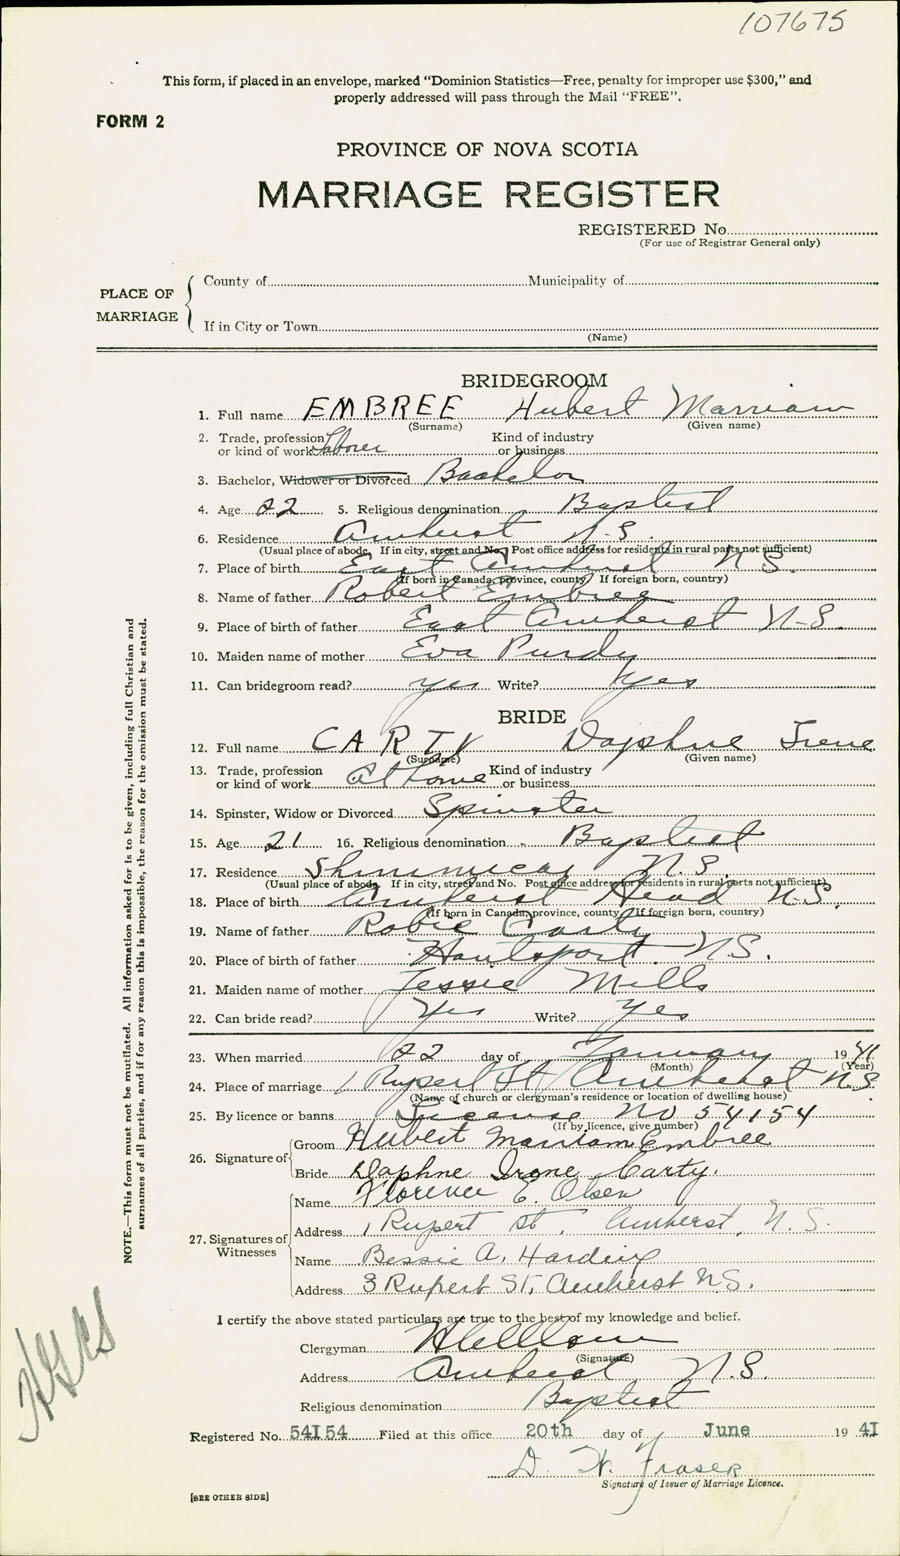 107675
This form, if placed in an envelope, marked "Dominion Statistics—Free, penalty for improper use $300," and
properly addressed will pass through the Mail "FREE".
FORM 2
PROVINCE OF NOVA SCOTIA
MARRIAGE REGISTER
REGISTERED No.
(For use of Registrar General only)
PLACE OF MARRIAGE
County of Municipality of
If in City or Town
(Name)
BRIDEGROOM
1. Full name EMBREE Hubert Marriam
(Surname) (Given name)
2. Trade, profession or kind of work Laborer Kind of industry or business
3. Bachelor, Widower or Divorced Bachelor
4. Age 22 5. Religious denomination Baptist
6. Residence Amherst N.S.
(Usual place of abode. If in city, street and No. Post office address for residents in rural parts not sufficient)
7. Place of birth East Amherst N S.
(If born in Canada, province, county. If foreign born, country)
8. Name of father Robert Embree
9. Place of birth of father East Amherst N-S.
10. Maiden name of mother Eva Purdy
11. Can bridegroom read? yes Write? Yes
BRIDE
12. Full name CARTY Daphne Irene
(Surname) (Given name)
13. Trade, profession or kind of work At home Kind of industry or business
14. Spinster, Widow or Divorced Spinster
15. Age 21 16. Religious denomination Baptist
17. Residence Shinimicas N.S.
(Usual place of abode. If in city, street and No. Post office address for residents in rural parts not sufficient)
18. Place of birth Amherst Head N.S.
(If born in Canada, province, county. If foreign born, country)
19. Name of father Robie Carty
20. Place of birth of father Hantsport. N S.
21. Maiden name of mother Jessie Mills
22. Can bride read? Yes Write? yes
23. When married 22 day of January 1941
(Month) (Year)
24. Place of marriage 1 Rupert St Amherst N.S.
(Name of church or clergyman's residence or location of dwelling house)
25. By licence or banns License No 54154
(If by licence, give number)
26. Signature of Groom Hubert Marriam Embree
Bride Daphne Irene Carty.
27. Signatures of Witnesses Name Florence E. Olsen
Address 1 Rupert St, Amherst, N.S.
Name Bessie A. Harding
Address 3 Rupert St, Amherst N.S.
I certify the above stated particulars are true to the best of my knowledge and belief.
Clergyman
(Signature)
Address Amherst N.S.
Religious denomination Baptist
Registered No. 54I54 Filed at this office 20th day of June 1941
D. W. Fraser
Signature of Issuer of Marriage Licence.
[SEE OTHER SIDE]
NOTE.—This form must not be mutilated. All information asked for is to be given, including full Christian and
surnames of all parties, and if for any reason this is impossible, the reason for the omission must be stated.